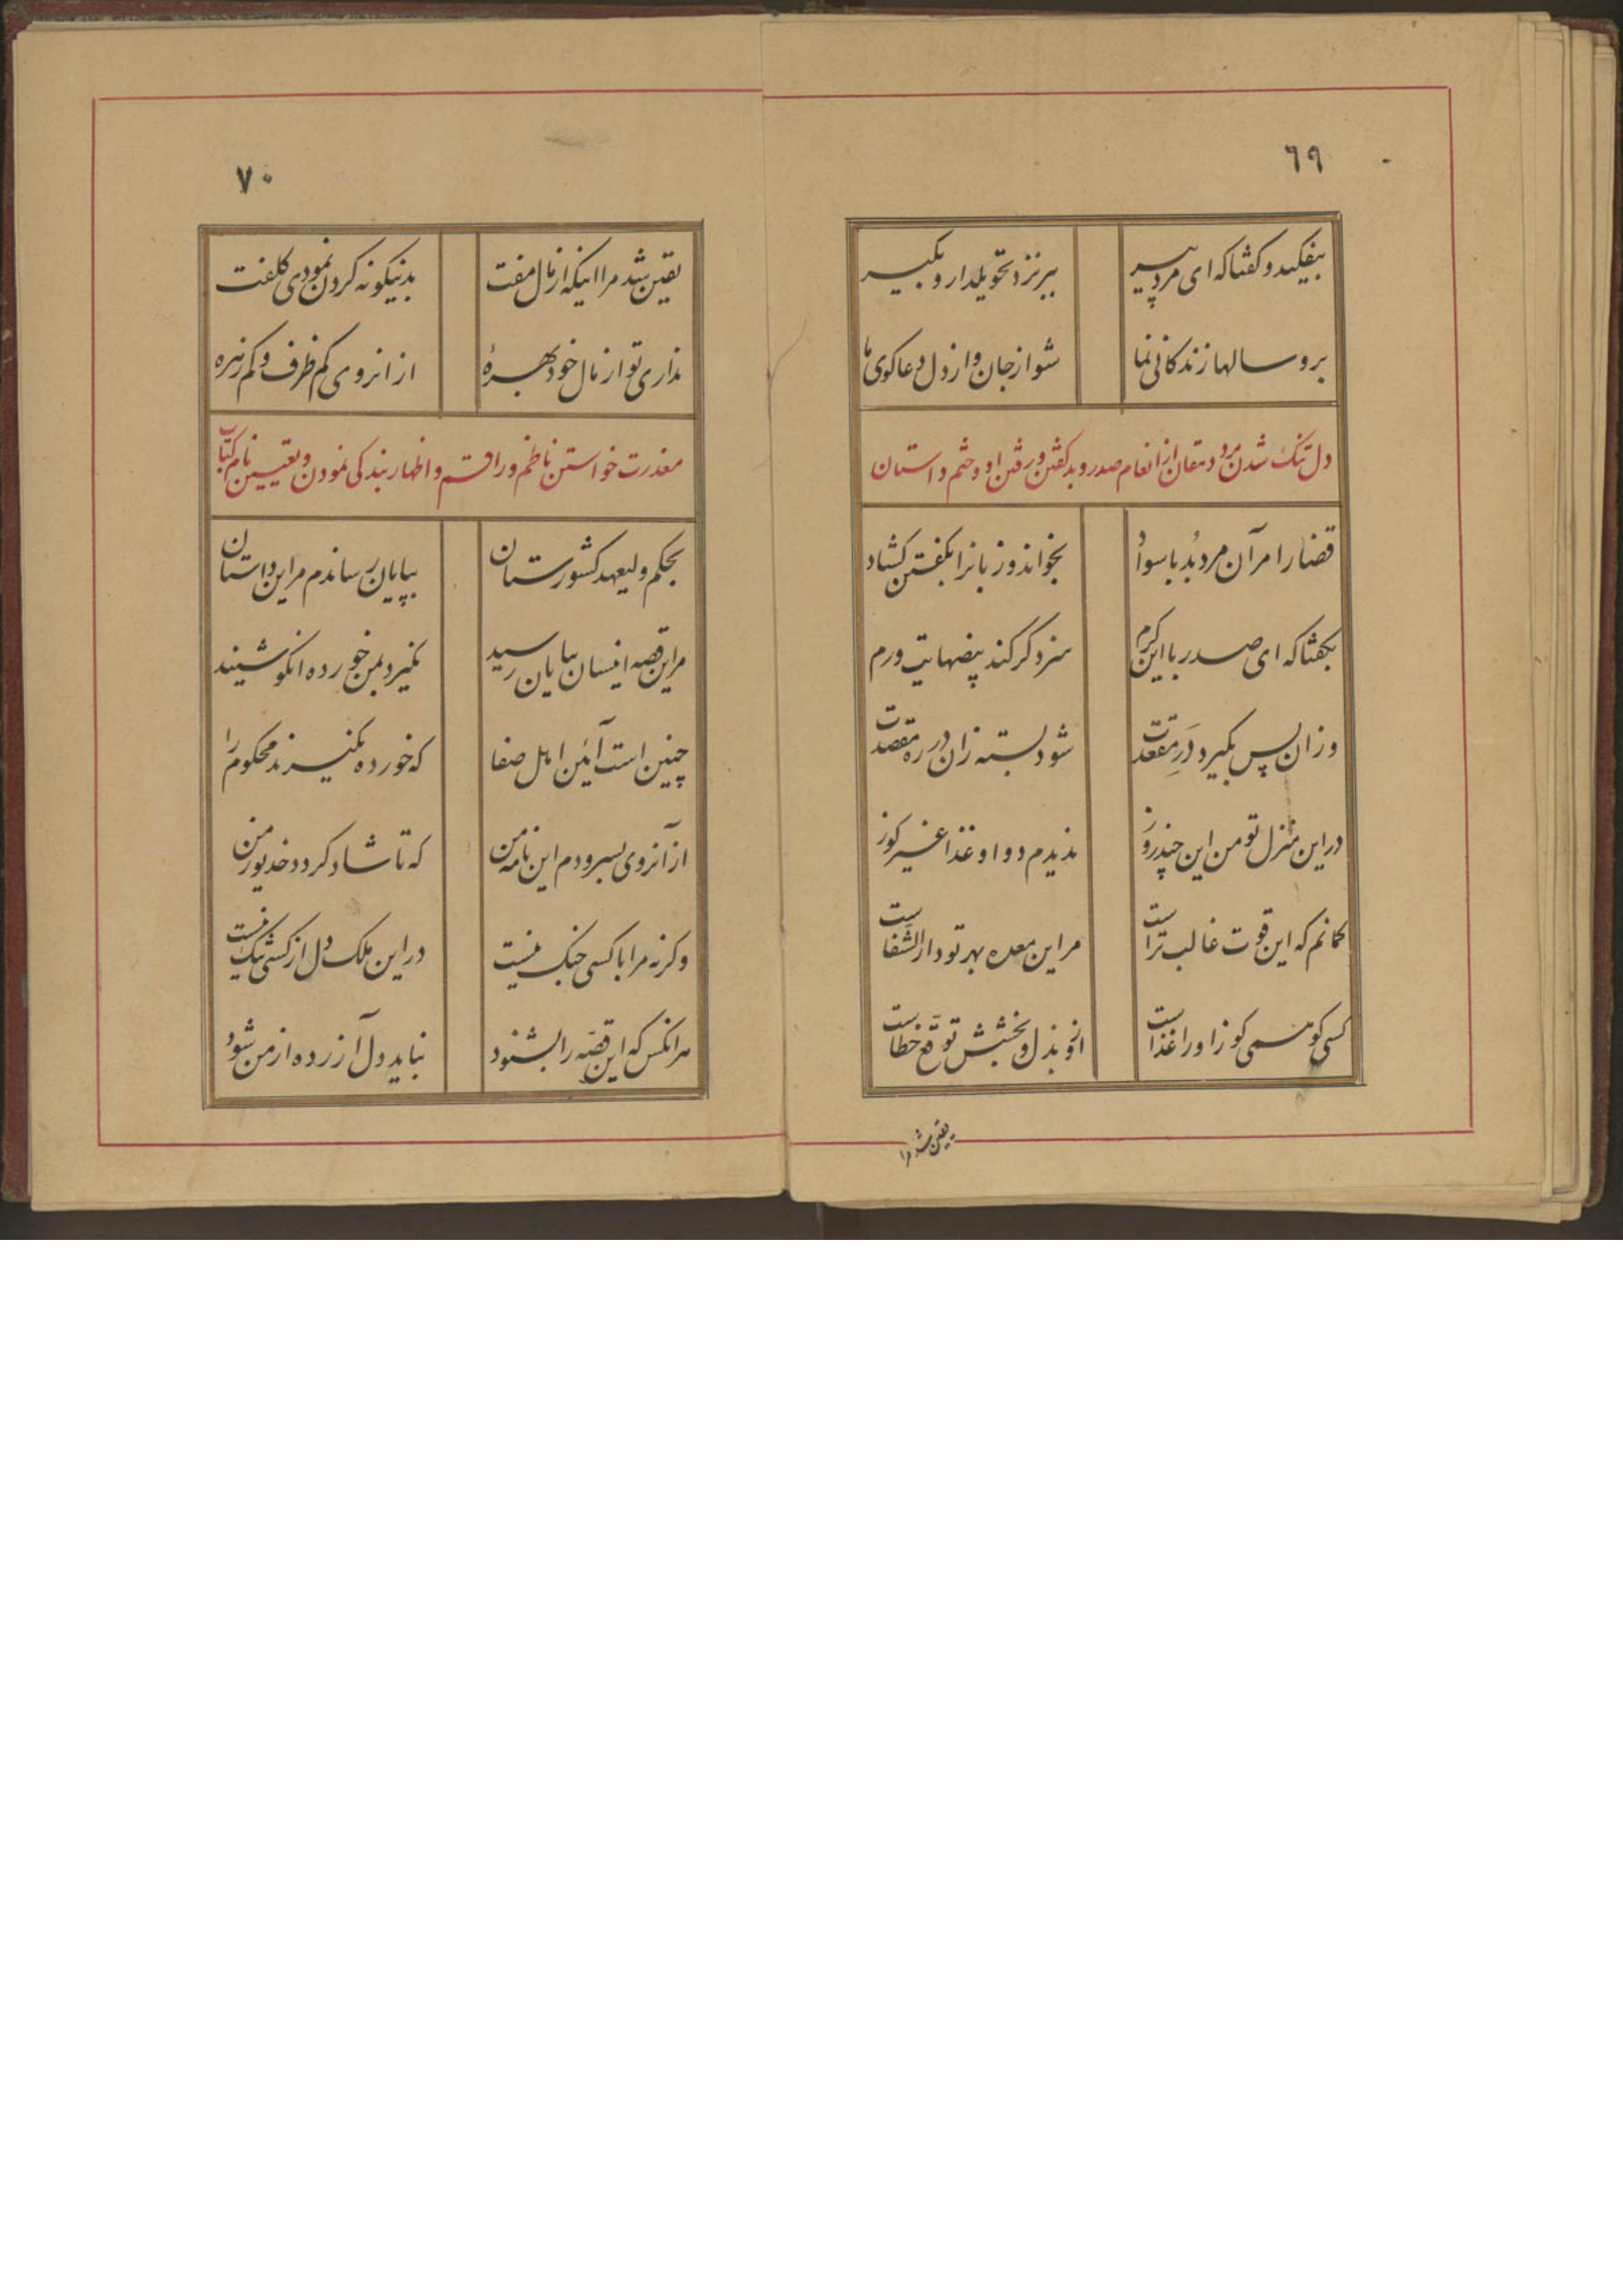 ٦٩
بیفکند و کفتا که ای مرد پیر
ببر نزد تحویلدار و بکیر
برو سالها زندکانی نما
شو از جان و از دل دعاکوی ما
دل تنک شدن مرد دهقان از انعام صدر و بد کفتن و رفتن او و ختم داستان
قضا را مر آن مرد بُد با سواد
بخواند و زبانرا بکفتن کشاد
بکفتا که ای صدر با این کرم
سزد کر کند بیضهایت ورم
وزان پس بکیرد دَرِ مقعدت
شود بسته زان در ره مقصدت
در این منزل تو من این چند روز
ندیدم دوا و غذا غیر کوز
کمانم که این قوت غالب تراست
مر این معده بهر تو دارالشّفاست
کسی کو سمی کوز او را غذاست
ازو بذل و بخشش توقّع خطاست
یقین شد مرا
٧٠
یقین شد مرا اینکه از مال مفت
بدنیکونه کردن نمودی کلفت
نداری تو از مال خود بهرهٔ
از انروی کم ظرف و کم زهره
معذرت خواستن ناظم و راقم و اظهار بندکی نمودن و تعیین نام کتاب
بحکم ولیعهد کشورستان
بپایان رساندم مر این داستان
مر این قصه اینسان بپایان رسید
نکیرد بمن خورده انکو شنید
چنین است آئین اهل صفا
که خورده نکیرند محکوم را
از آنروی بسرودم این نامه من
که تا شاد کردد خدیو ز من
وکرنه مرا با کسی جنک نیست
در این ملک دل از کسی تنک نیست
هر انکس که این قصّه را بشنود
نباید دل آزرده از من شود